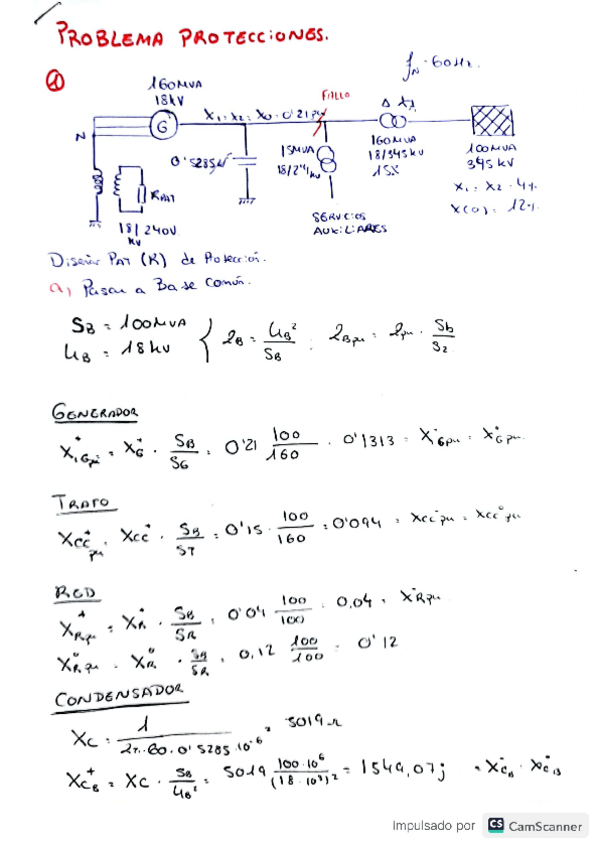 PROBLEMA PROTECCIONES.
fN = 60Hz.
1
160MVA
18kV
G
N
X1 = X2 = X0 = 0'21 pu
FALLO
Δ
160MVA
18/345 kV
15%
100MVA
345 kV
X1 = X2 = 4%
X(0) = 12%
0'5285
15MVA
18/2'4 kV
SERVICIOS
AUXILIARES
RPAT
18/240V
kV
Diseñar PAT (R) de Protección.
a) Pasar a Base común.
SB = 100MVA
UB = 18 kV
ZB = UB² / SB ; ZBpu = Zpu · Sb / S2
GENERADOR
X1Gpu⁺ = XG⁺ · SB / SG = 0'21 100 / 160 = 0'1313 = XGpu⁻ = XGpu°
TRAFO
Xccpu⁺ = Xcc⁺ · SB / ST = 0'15 · 100 / 160 = 0'094 = Xccpu⁻ = Xccpu°
RED
XRpu⁺ = XR⁺ · SB / SR = 0'04 100 / 100 = 0,04 = XRpu⁻
XRpu° = XR° · SB / SR = 0,12 100 / 100 = 0'12
CONDENSADOR
XC = 1 / 2π·60·0'5285·10⁻⁶ = 5019 Ω
XCB⁺ = XC · SB / UB² = 5019 100·10⁶ / (18·10³)² = 1549,07j = XCB⁻ = XCB°
Impulsado por CS CamScanner